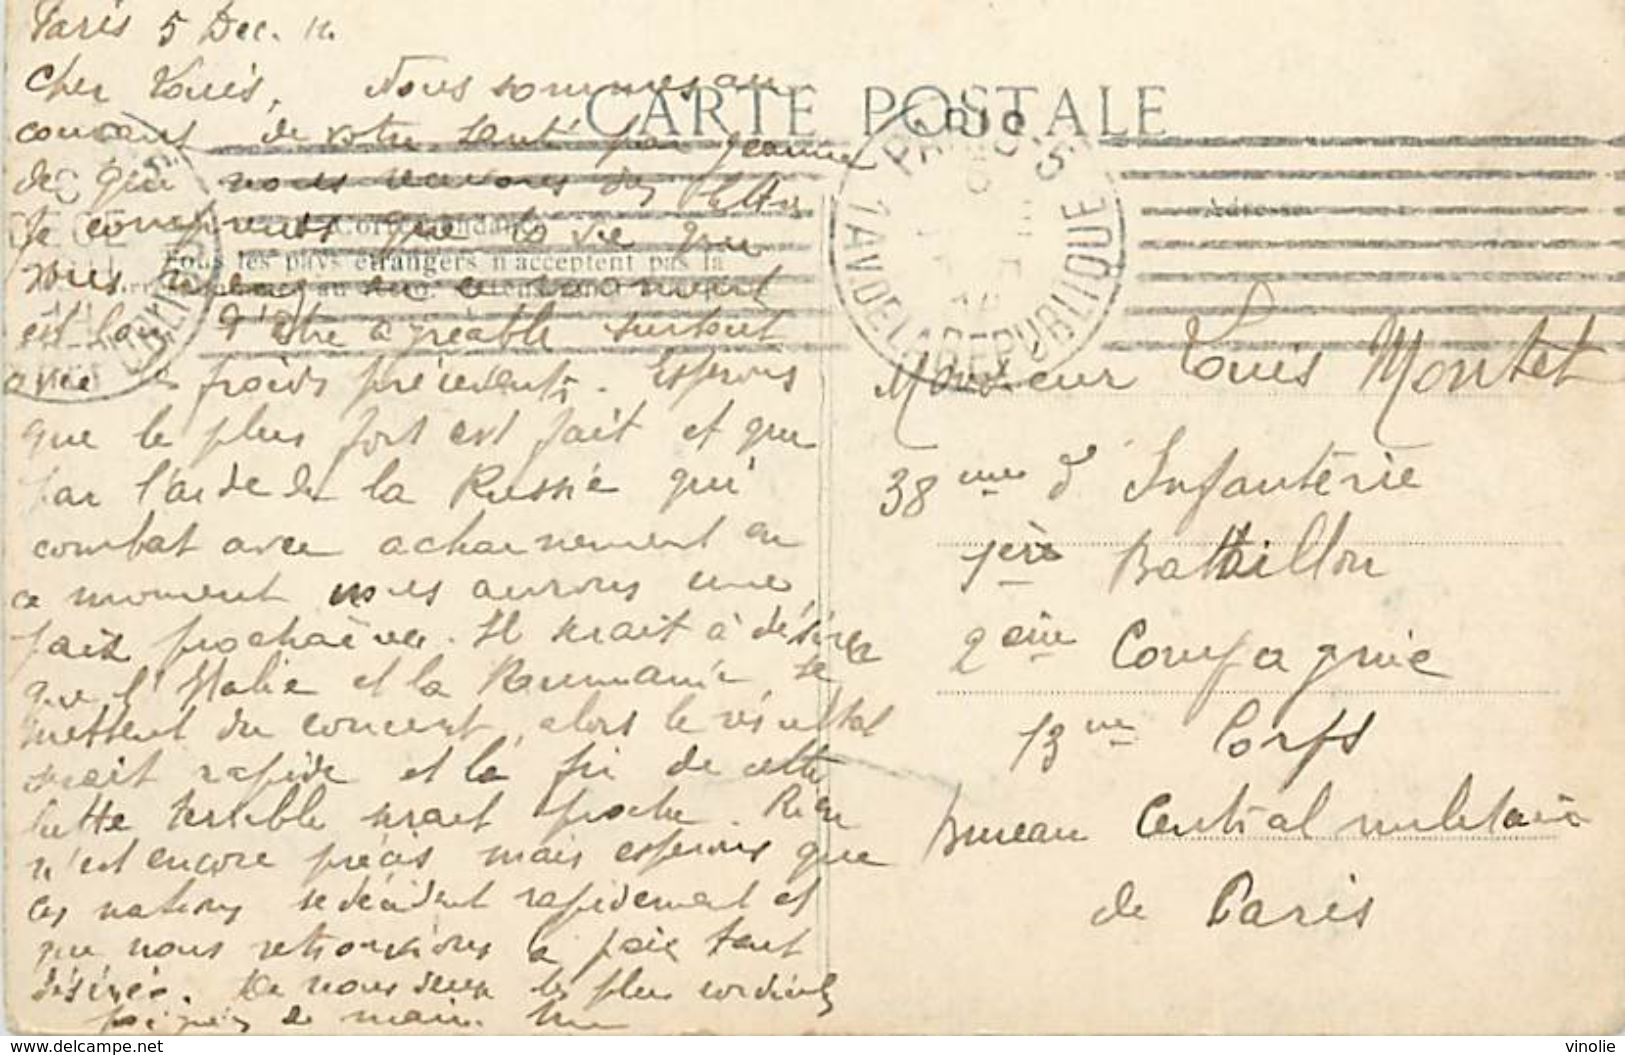 Paris 5 Dec. 14
Cher Louis, Nous sommes au
courant de votre santé par Jeanne
de qui nous recevons des lettres
Je comprends que la vie que
vous menez en ce moment
est loin d'être agréable surtout
avec les froids précédents. Espérons
que le plus fort est fait et que
par l'aide de la Russie qui
combat avec acharnement en
ce moment nous aurons une
paix prochaine. Il serait à désirer
que l'Italie et la Roumanie se
mettent du concert, alors le résultat
serait rapide et la fin de cette
lutte terrible serait proche. Rien
n'est encore précis mais esperons que
ces nations se décident rapidement et
que nous retrouvions la paix tant
désirée. De nous deux les plus cordiales
poignées de main.
CARTE POSTALE
Correspondance
Tous les pays étrangers n'acceptent pas la
Adresse
PARIS
1 AV. DE LA REPUBLIQUE
Monsieur Louis Montet
38eme d'Infanterie
1ère Bataillon
2eme Compagnie
13me Corps
Bureau Central militaire
de Paris
www.delcampe.net
vinolie